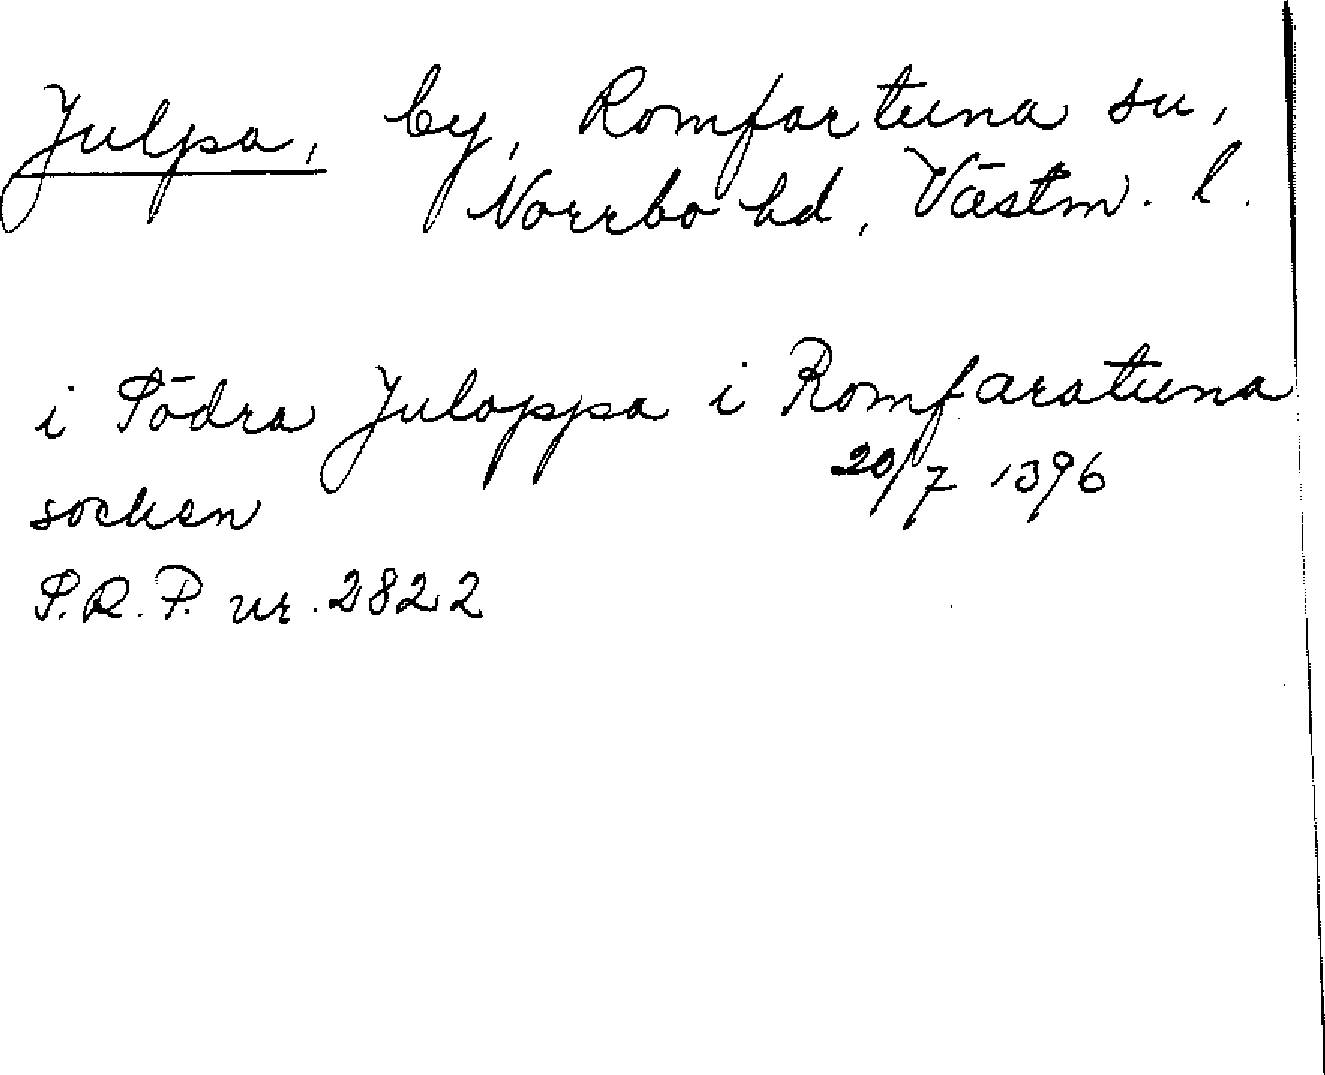 Julpa, by, Romfartuna sn,
Norrbo hd, Västm. l.
i Södra Juloppa i Romfaratuna
20/7 1396
socken
S.R.P. nr. 2822